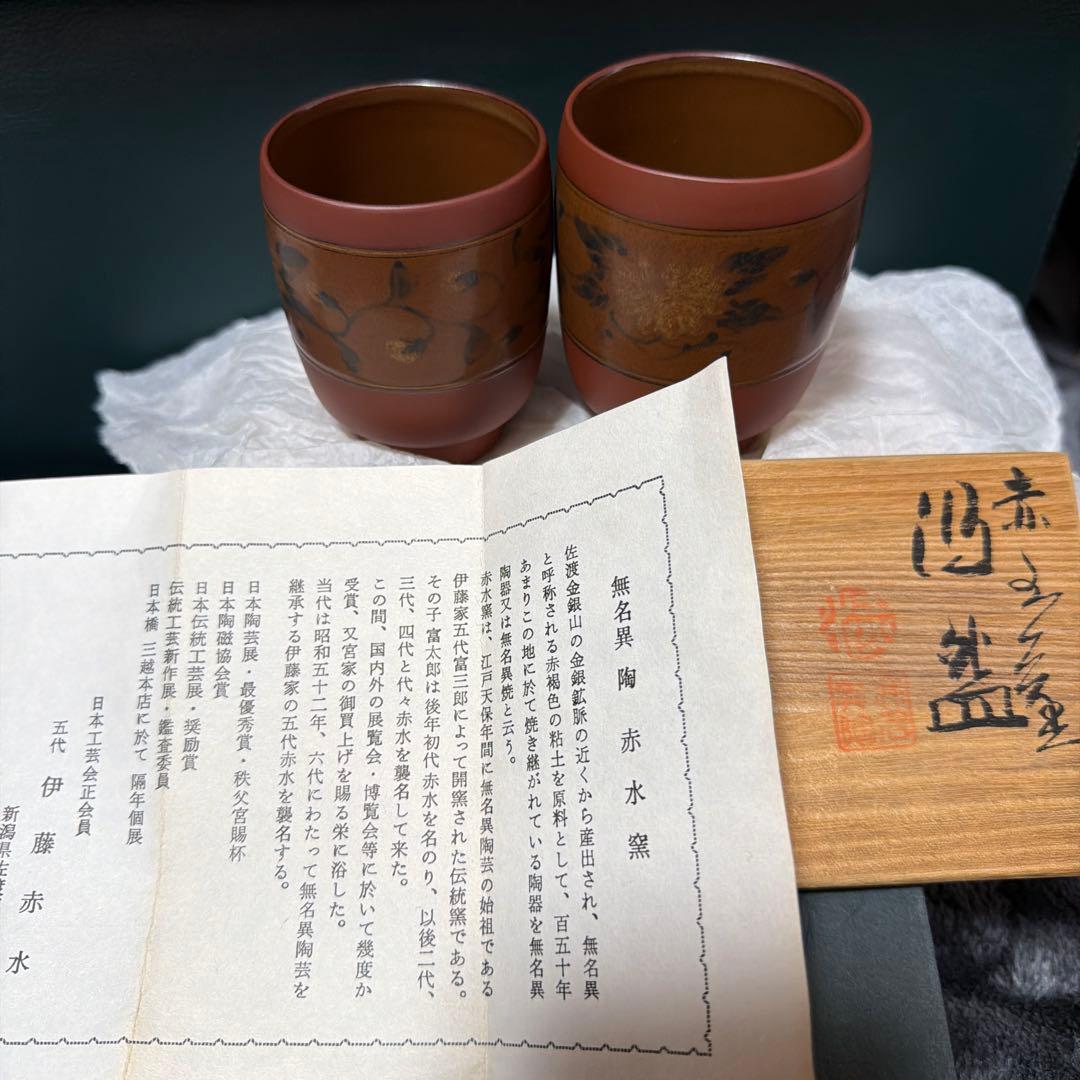 無名異陶 赤水窯
佐渡金銀山の金銀鉱脈の近くから産出され、無名異
と呼称される赤褐色の粘土を原料として、百五十年
あまりこの地に於て焼き継がれている陶器を無名異
陶器又は無名異焼と云う。
赤水窯は、江戸天保年間に無名異陶芸の始祖である
伊藤家五代富三郎によって開窯された伝統窯である。
その子富太郎は後年初代赤水を名のり、以後二代、
三代、四代と代々赤水を襲名して来た。
この間、国内外の展覧会・博覧会等に於いて幾度か
受賞、又宮家の御買上げを賜る栄に浴した。
当代は昭和五十二年、六代にわたって無名異陶芸を
継承する伊藤家の五代赤水を襲名する。
日本陶芸展・最優秀賞・秩父宮賜杯
日本陶磁協会賞
日本伝統工芸展・奨励賞
伝統工芸新作展・鑑査委員
日本橋 三越本店に於て 隔年個展
日本工芸会正会員
五代 伊藤赤水
新潟県佐渡
赤水窯